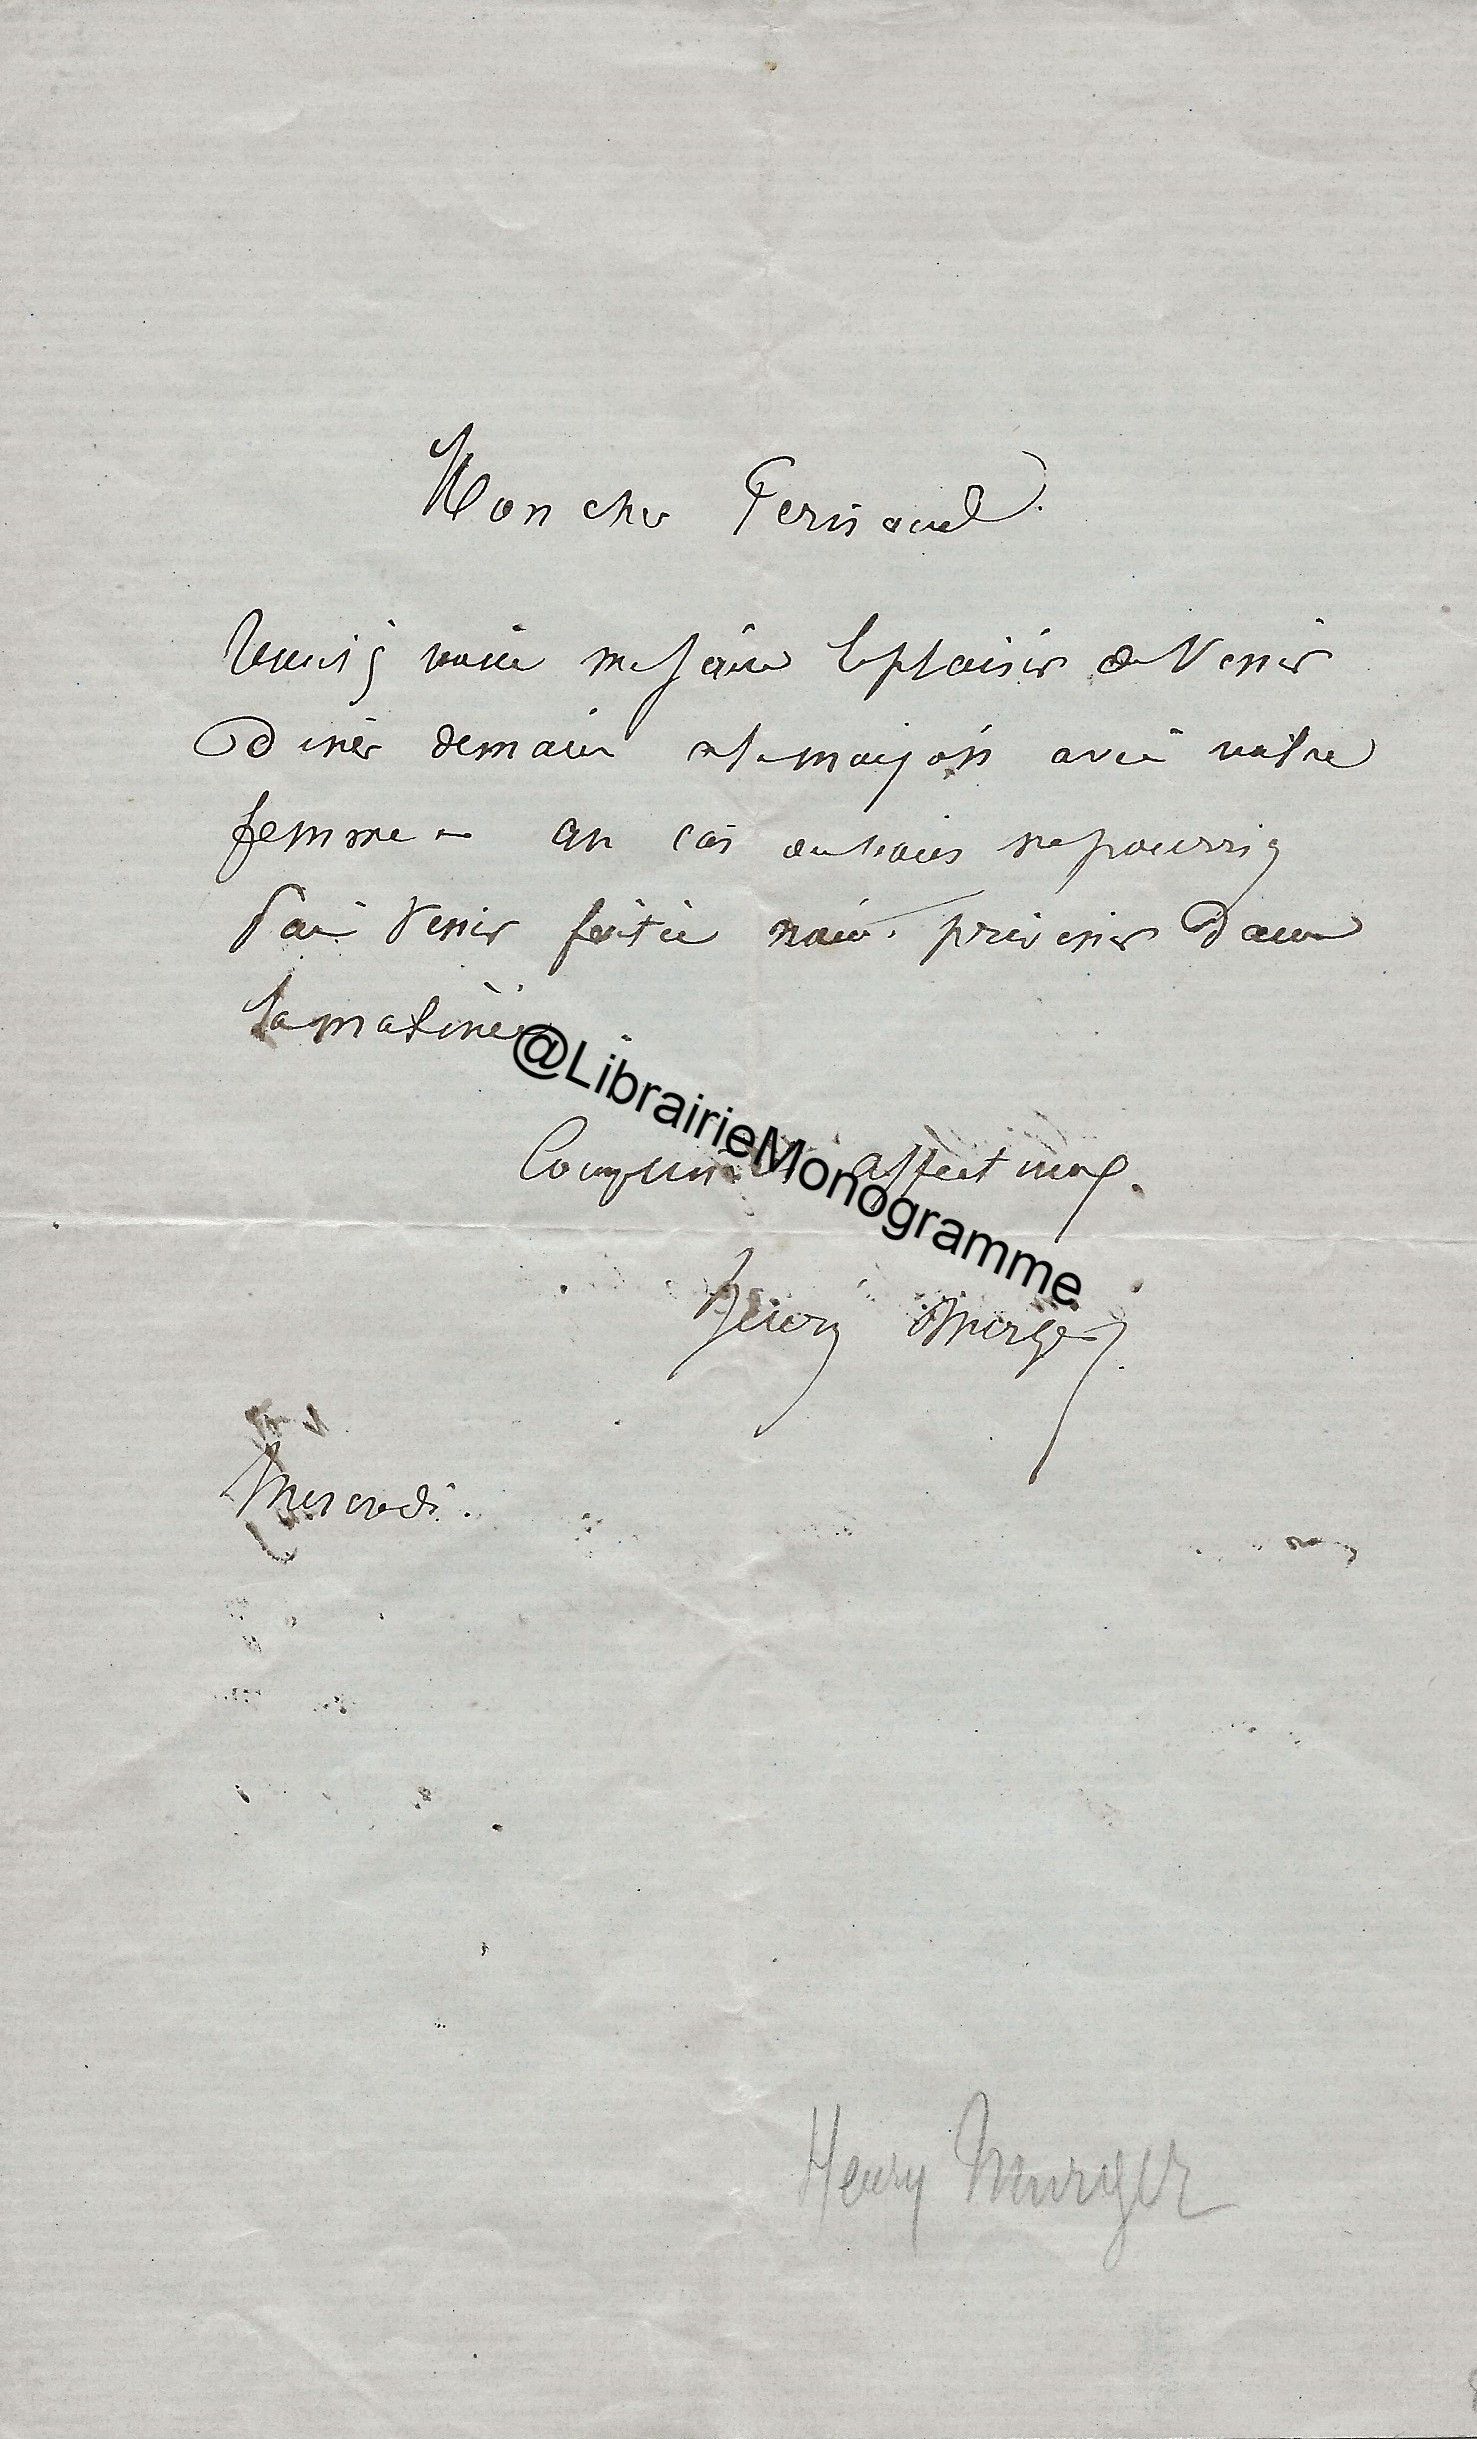 Mon cher Fernand.
Veuillez nous faire le plaisir de venir
diner demain à la maison avec votre
femme — au cas où vous ne pourriez
pas venir faites nous prévenir dans
la matinée
@LibrairieMonogramme
Compli affectueux.
Henry Murger
Mercredi.
Henry Murger